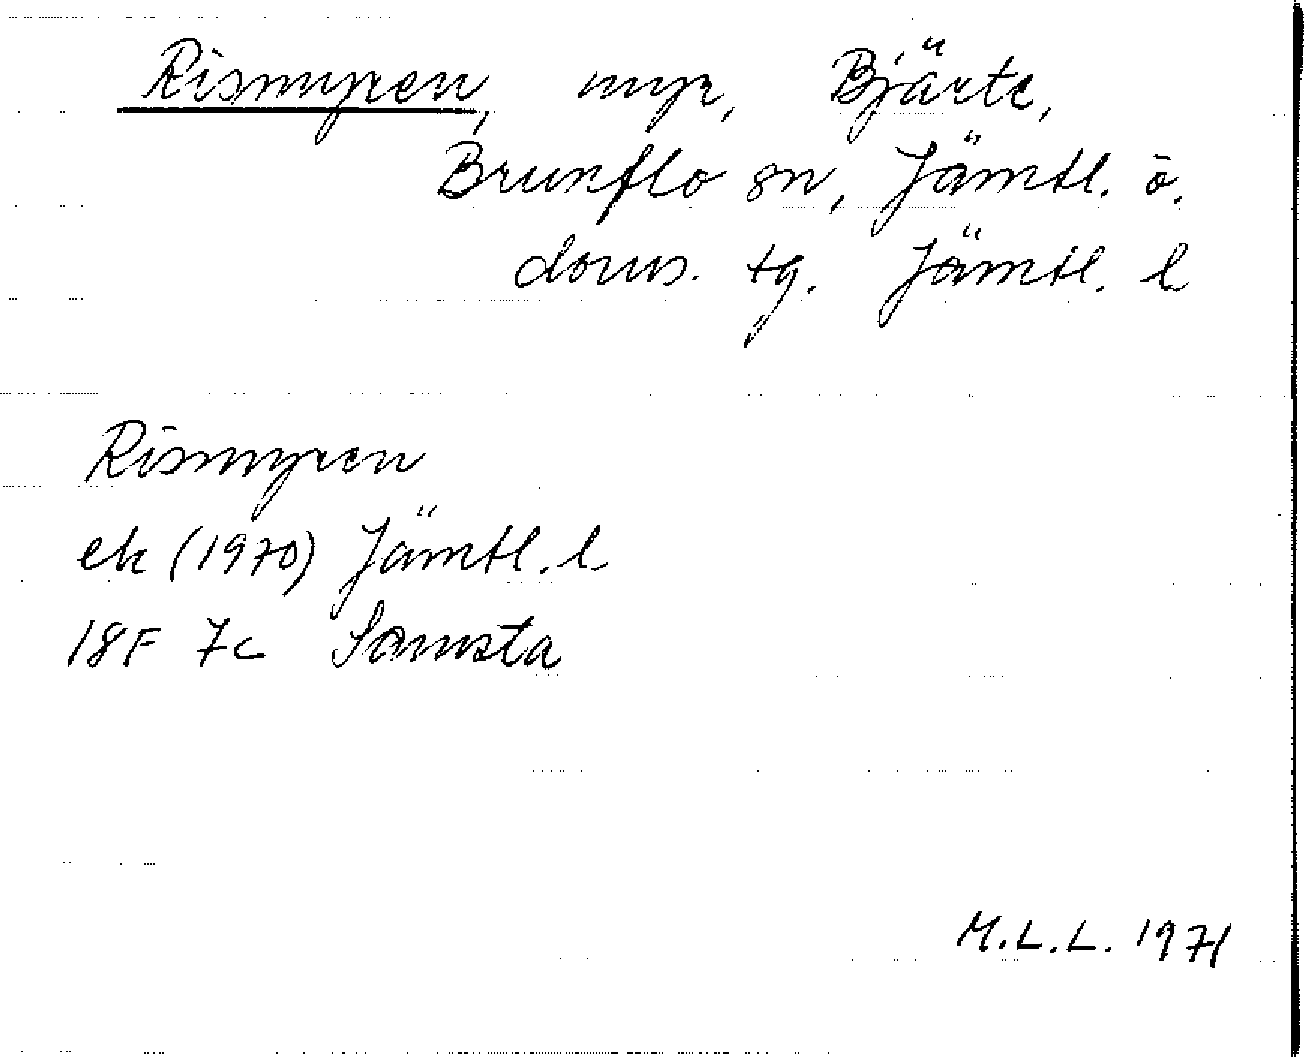 Rismyren, myr, Bjärte,
Brunflo sn, Jämtl. ö.
doms. tg. Jämtl. l
Rismyren
ek (1970) Jämtl. l
18F 7c Samsta
M.L.L. 1971